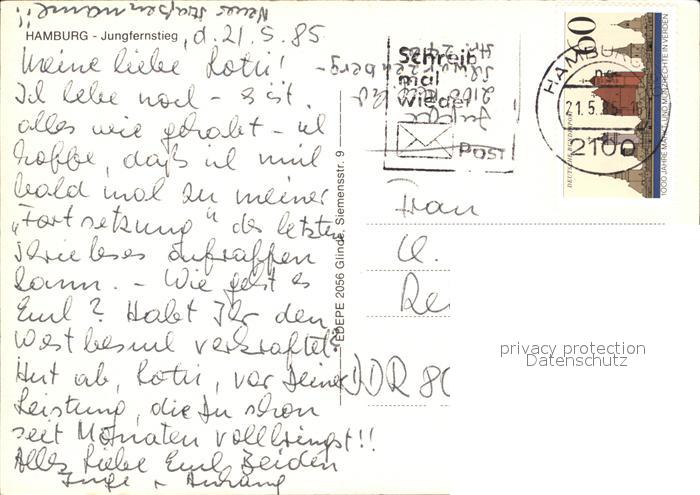 Neuer Straßenname!!
HAMBURG - Jungfernstieg, d. 21.5.85
Meine liebe Lotti! -
Ich lebe noch - es ist
alles wie gehabt - ich
hoffe, daß ich mich
bald mal zu meiner
"Fortsetzung" des letzten
Briefes aufraffen
kann. - Wie geht es
Euch? Habt Ihr den
Westbesuch verkraftet?
Hut ab, Lotti, vor Deiner
Leistung, die Du schon
seit Monaten vollbringst!!
Alles Liebe Euch Beiden
Inge + Anhang
EDEPE 2056 Glinde, Siemensstr. 9
2100
Schreib
mal
wieder
POST
HAMBURG
21.5.85
2100
60
DEUTSCHE BUNDESPOST
1000 JAHRE MARKT- UND MÜNZRECHTE IN VERDEN
Frau
DDR 80
privacy protection
Datenschutz